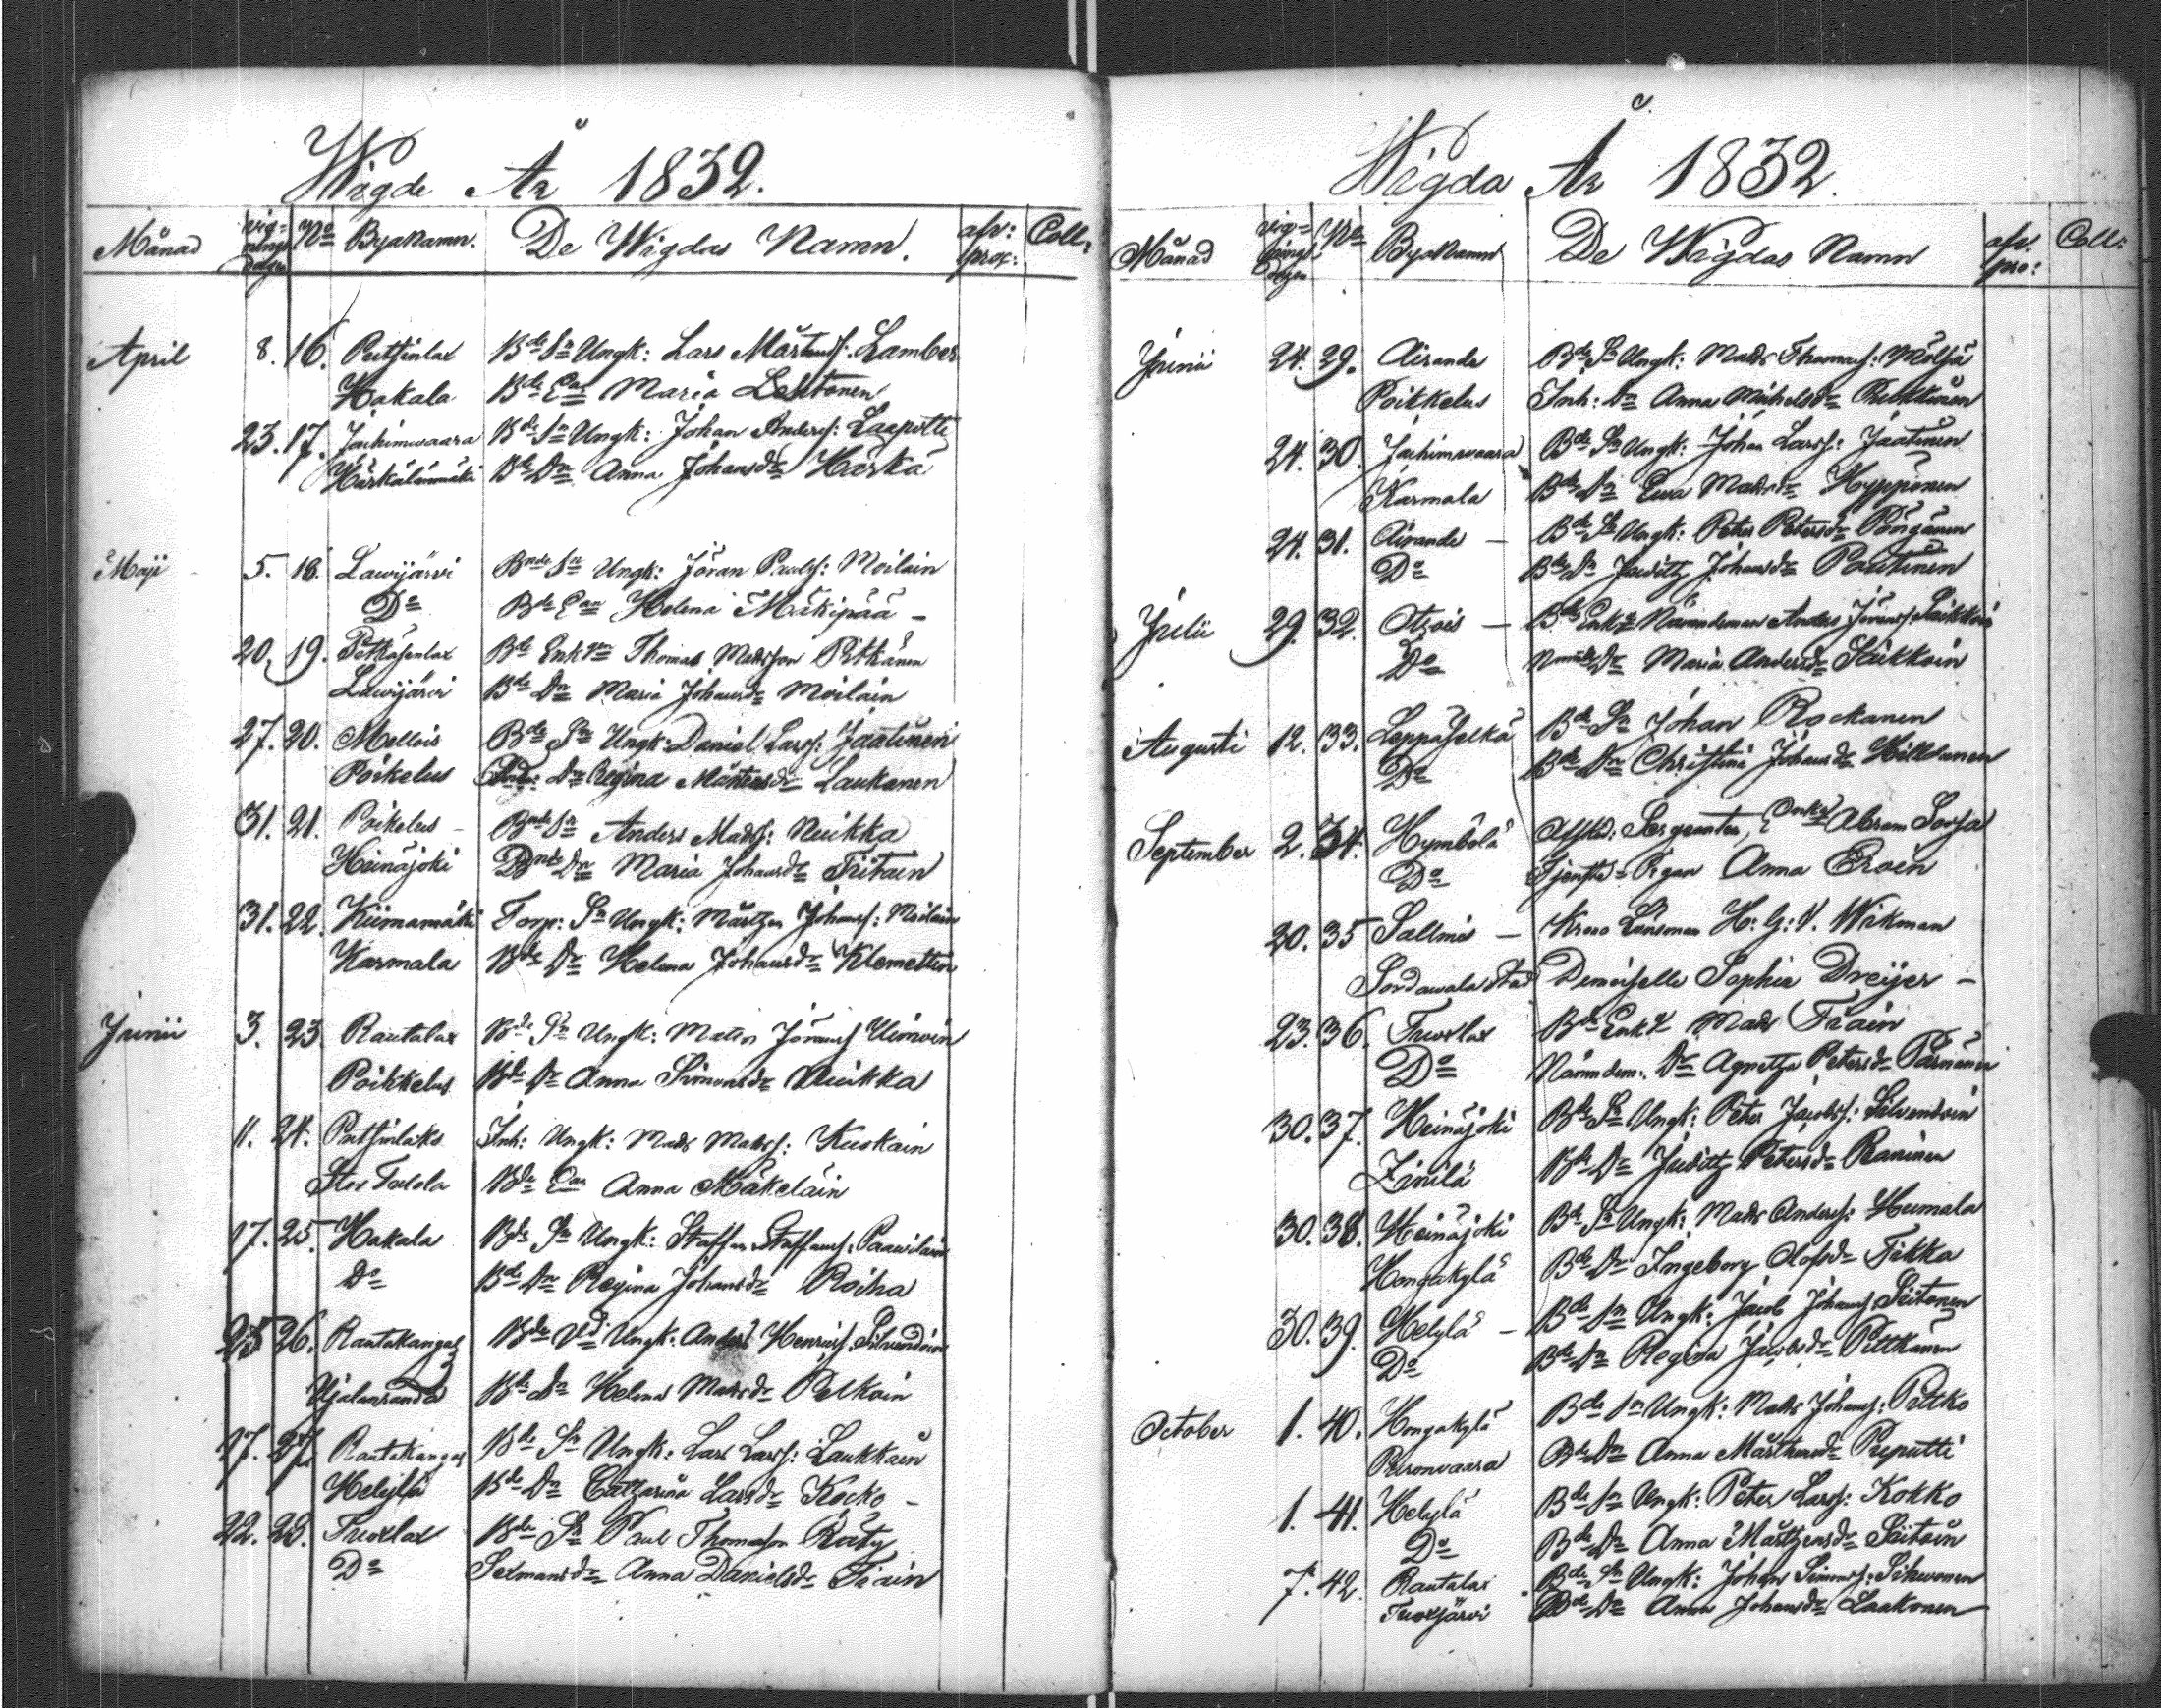 Wigde År 1832.
Månad vig- nings dagen No Byanamn. De Wigdas Namn. afv: prox: Coll:
April 8. 16. Putsinlax Bde Sn Ungk: Lars Mårtenss: Lamber
Hakala Bde Ean Maria Lehtonen
23. 17. Jachimwaara Bde Sn Ungk: Johan Anderss: Laapotti
Härkälänmäki Bde Dn Anna Johansdr Härkä
Maji 5. 18. Lawijärvi Bnde Sn Ungk: Jöran Paulss: Moilain
Do Bde Ean Helena Mäkipää -
20. 19. Petkäsenlax Bde Enkn Thomas Madsson Pitkänen
Lawijärvi Bde Dn Maria Johansdr Moilain
27. 20. Mellois Bde Sn Ungk: Daniel Larss: Jaatinen
Poikelus Dn Regina Mårtensdr Laukanen
31. 21. Poikelus - Bnde Sn Anders Madss: Nuikka
Heinäjoki Bnde Dn Maria Johansdr Tiitain
31. 22. Kiimamäki Torp: Sn Ungk: Mårten Johanss: Moilain
Karmala Bde Dr Helena Johansdr Klemettin
Junii 3. 23 Rautalax Bde Sn Ungk: Matts Jöranss
Poikkelus Bde Dr Anna Simonsdr Nuikka
11. 24. Putsinlaks Inh: Ungk: Mads Madss: Kuskain
Stor Bde Ean Anna Mäkeläin
17. 25. Hakala Bde Sn Ungk: Staffan Staffanss: Paawilain
Do Bde Dn Regina Johansdr Roiha
25 26. Rautakangas Bde Ungk: Anders Henricss: Silvendoin
Hjalanranda Bde Dn Helena Madsdr Pelkoin
17. 27. Rautakangas Bde Sn Ungk: Lars Larss: Laukkain
Helylä Bde Dn Catharina Larsdr Kocko -
22. 28. Tuoxlax Bde Sn Paul Thomasson Räty
Do Sexmansdr Anna Danielsdr Tiain
Wigda År 1832.
Månad vig- nings dagen No Byanamn De Wigdas Namn afv: pro: Coll:
Junii 24. 29. Airanda Bde Sn Ungk: Mads Thomass: Mölsä
Poikkelus Inh: Dn Anna Michelsdr Rukkuinen
24. 30. Jachimwaara Bde Sn Ungk: Johan Larss: Jaatinen
Karmala Bde Dn Ewa Madsdr Hyppönen
24. 31. Airanda - Bde Sn Ungk: Peter Petersdr Pöngänen
Do Bde Dn Judith Johansdr Pautinen
Julii 29. 32. Otsois - Bde Enkl Nämndeman Anders Jöranss Saikkoin
Do Dr Maria Andersdr Saikkoin
Augusti 12. 33. Leppäselkä Bde Sn Johan Rockanen
Do Bde Dn Christina Johansdr Hilldunen
September 2. 34. Hymbölä Afsked: Sergeanten, Enkl Abram Sorsa
Do Tjenste-Pigan Anna Eroin
20. 35 Sallmis - Krono Länsman H: G: V. Wikman
Sordawala Stad Demoiselle Sophia Dreijer -
23. 36. Tuoxlax Bde Enkl Mads Tiain
Do Nämndem: Dr Agnetha Petersdr Pärnänen
30. 37. Heinäjoki Bde Sn Ungk: Peter Jacobss: Silvendoin
Zinilä Bde Dr Judith Petersdr Raninen
30. 38. Heinäjoki Bde Sn Ungk: Mads Anderss: Humala
Hongakylä Bde Dr Ingeborg Olofsdr Tikka
30. 39. Helylä - Bde Sn Ungk: Jacob Johanss Siitonen
Do Bde Dn Regina Jacobsdr Pittkänen
October 1. 40. Hongakylä Bde Sn Ungk: Mats Johanss: Pittko
Puronvaara Bde Dn Anna Mårtensdr Puputti
1. 41. Helylä Bde Sn Ungk: Peter Larss: Kokko
Do Bde Dn Anna Mårtensdr Siitoin
7. 42. Rautalax Bde Sn Ungk: Johan Simonss: Sihwonen
Tuoxjärvi Bde Dn Anna Johansdr Laakonen